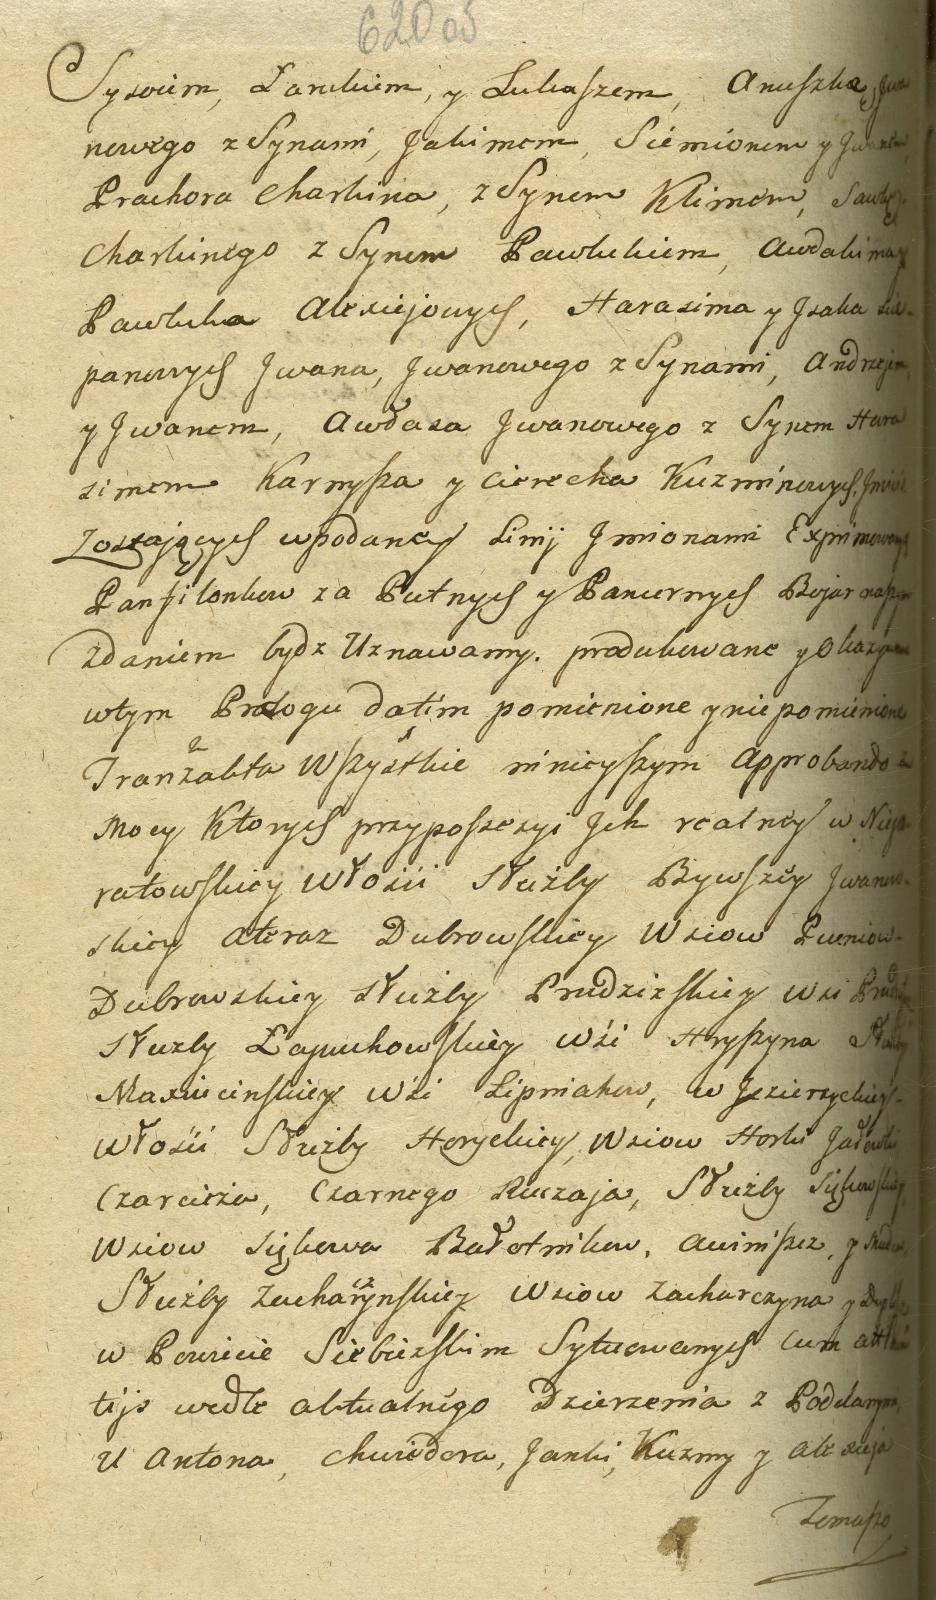 620 os
Sysoiem, Larckiem, y Lukaszem, Anuszka, Jwa
nowego z Synami, Jakimem, Siemionem y Jwanem,
Prachora Charkina, z Synem Klimem, Sawy
Charkinego z Synem Pawlukiem, Awdakima y
Pawluka Alexiejowych, Harasima y Jsaka
panowych Jwana, Jwanowego z Synami, Andrzejem
y Jwanem, Awdasa Jwanowego z Synem Hara
simem Karnysza y Cierecha Kuzminowych,
Zostających w podaney Linij Jmionami Exprimowanych
Panfilonkow za Putnych y Pancernych Bojar
Zdaniem bydz Uznawamy. produkowane y Okazywane
w tym Prologu datim pomienione y nie pomienione
Tranzakta Wszystkie ninieyszym approbando
Mocy Ktorych przyposzczyi Jch realney w
ratowskiey Włości Służby Bywszey Jwanow-
skiey ateraz Dubrowskiey Wsiow
Dubrowskiey Służby Prudziskiey wsi
Służby Łapuchowskiey Wsi Hryszyna
Maxiucinskiey Wsi Lipniakow, w Jezieryskiey
Włości Służby Horyckiey, Wsiow Horki
Czarcieża, Czarnego Ruczaja, Służby
Wsiow Siękowa Bałotnikow, awiniszcz, y
Służby Zacharzynskiey Wsiow Zacharczyna y
w Powiecie Siebieżskim Sytuowanych Cum
tijs wedle aktualnego Dzierzenia z Poddanymi,
U Antona, Chwiedora, Janki, Kuzmy y Alexieja
Tomasza